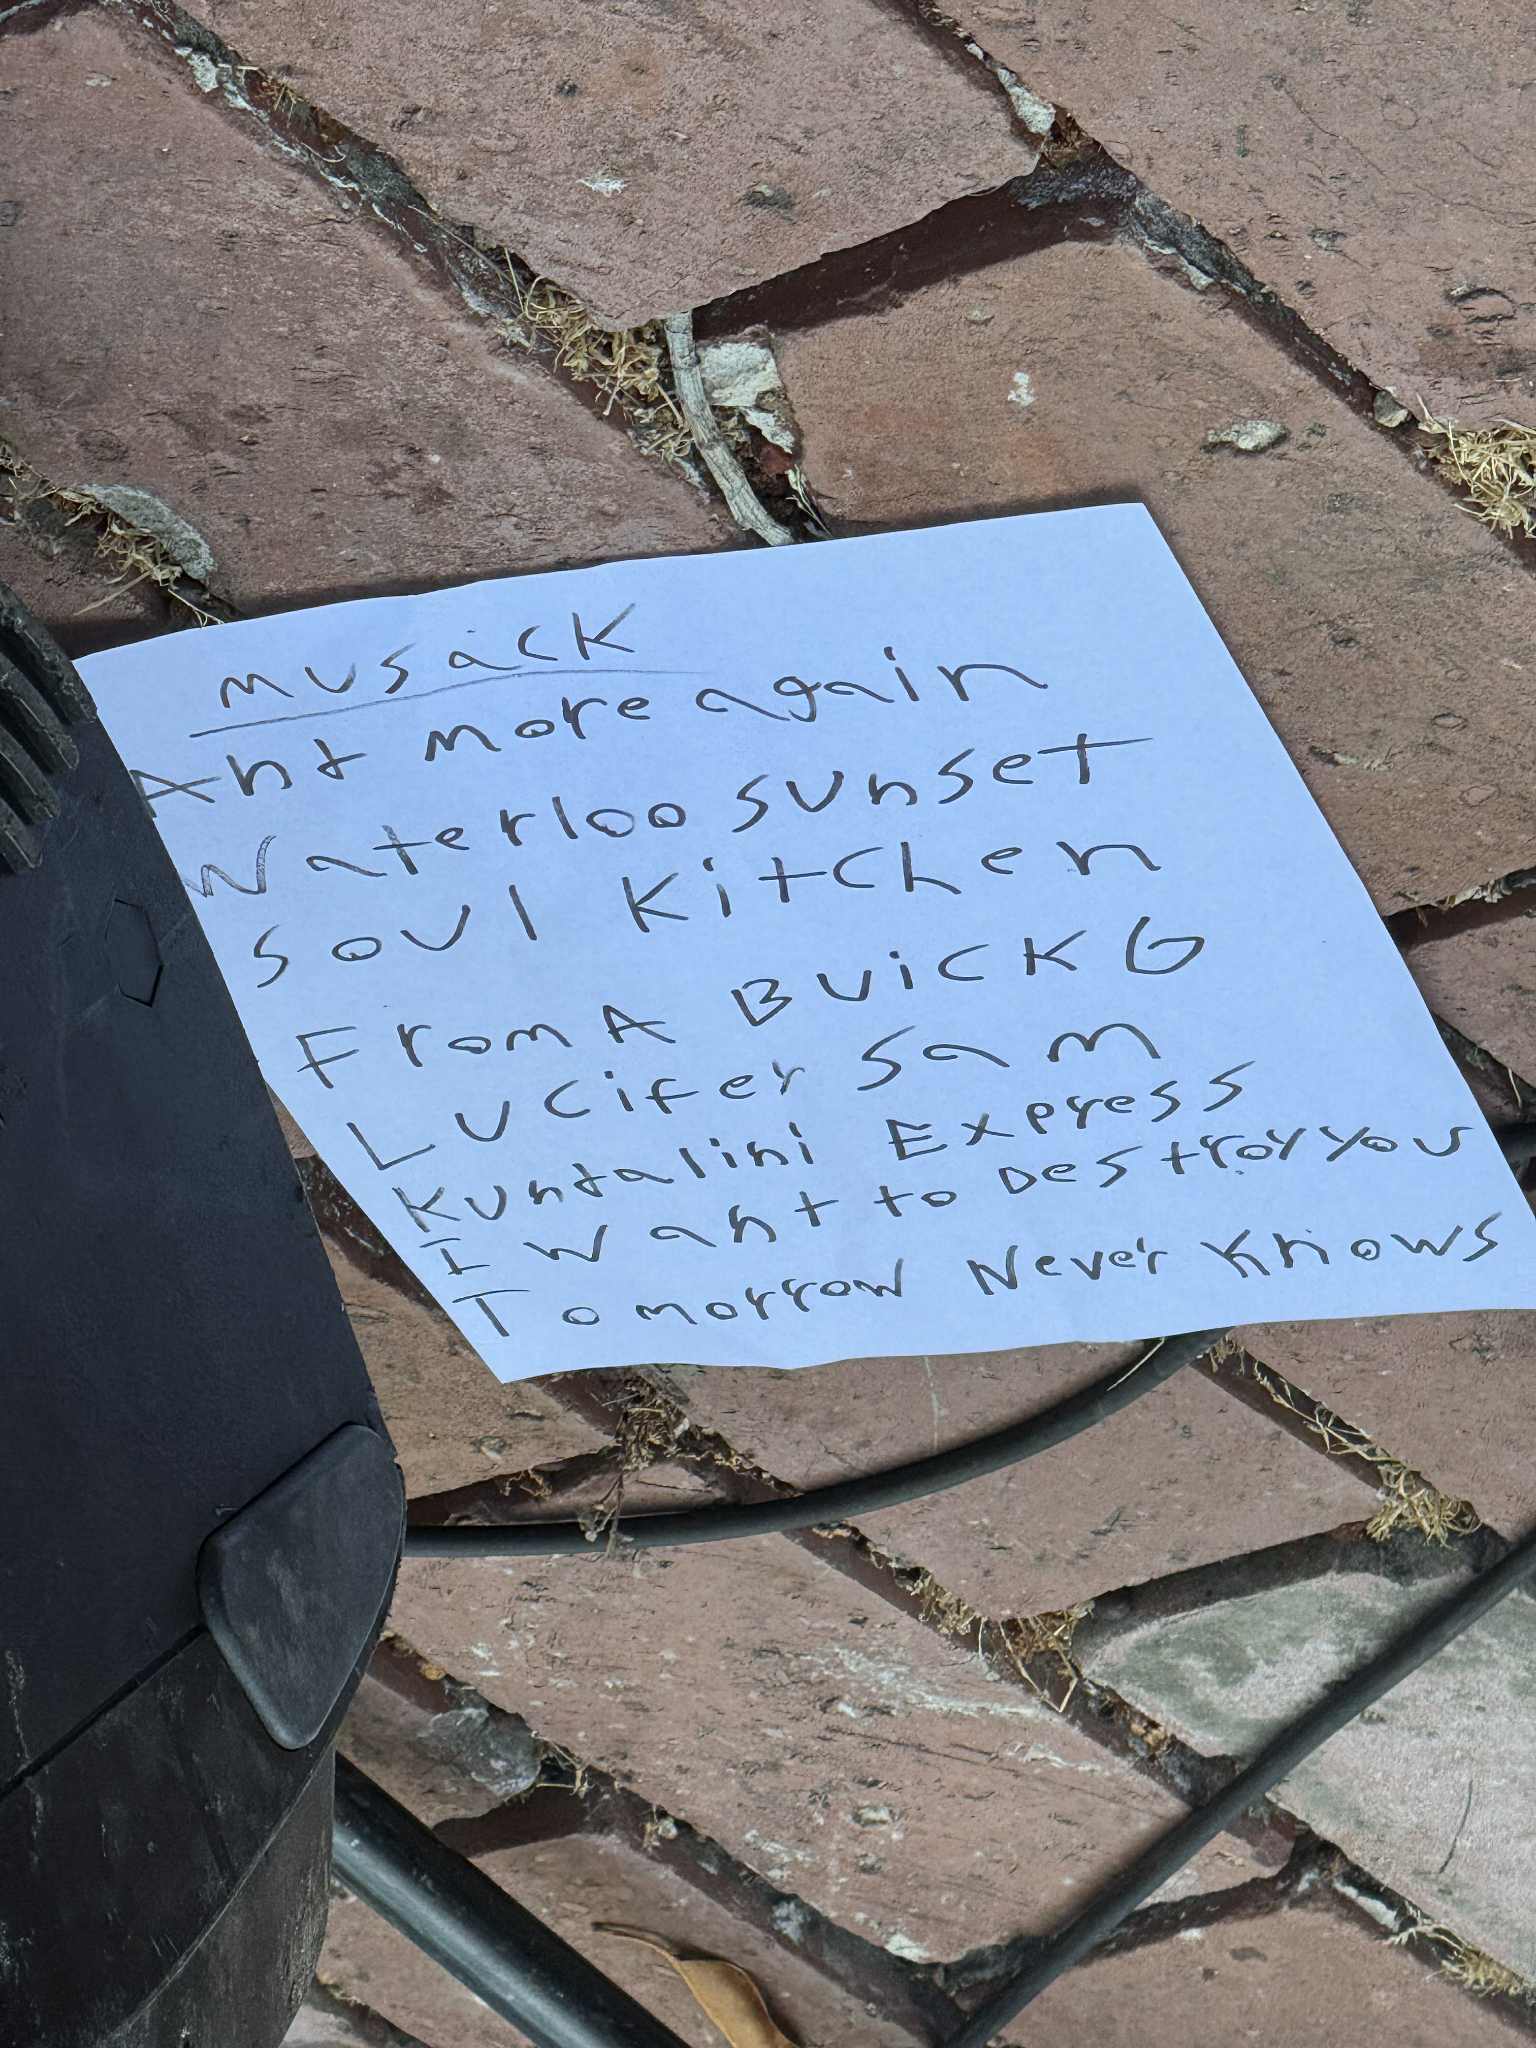 musack
And more again
Waterloo sunset
Soul Kitchen
From A Buick 6
Lucifer Sam
Kundalini Express
I want to Destroy you
Tomorrow Never Knows